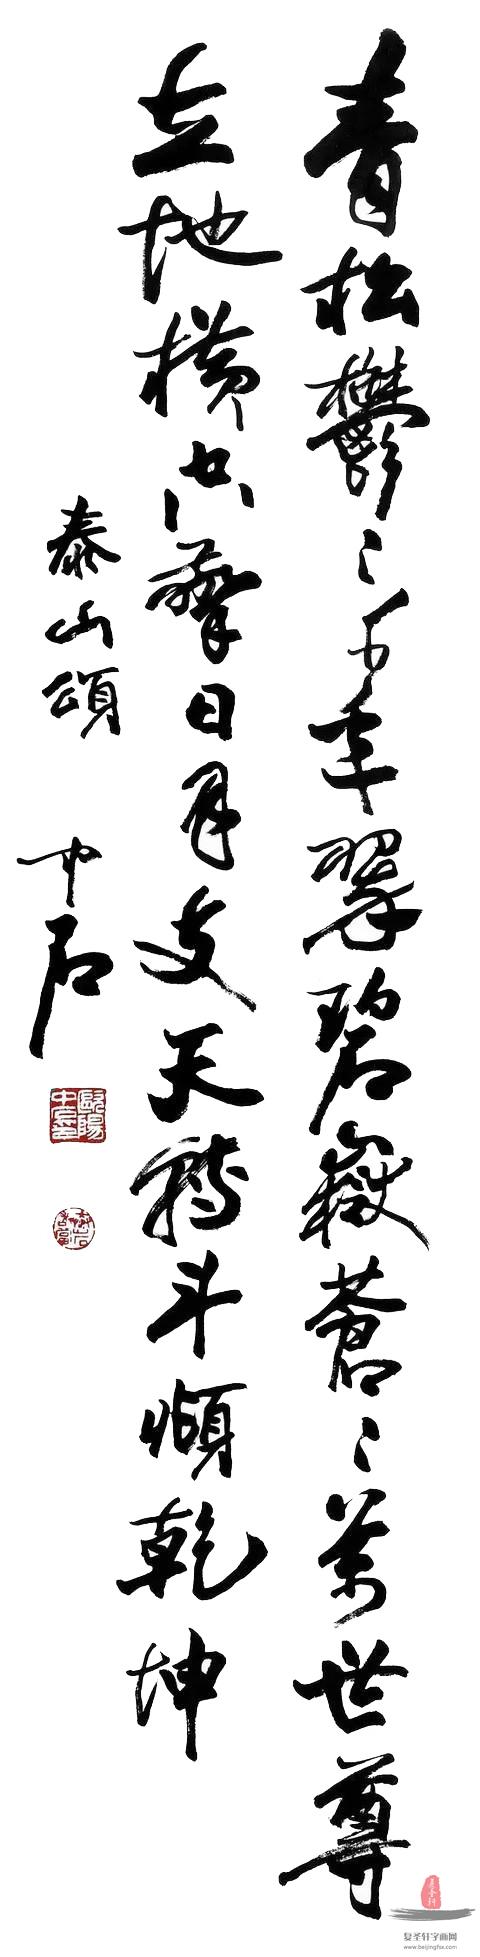 青松鬱〻千年翠碧嶽蒼〻萬世尊
立地橫空擎日月支天轉斗順乾坤
泰山頌
中石
歐陽中石
复圣轩字画网
www.beijingfsx.com